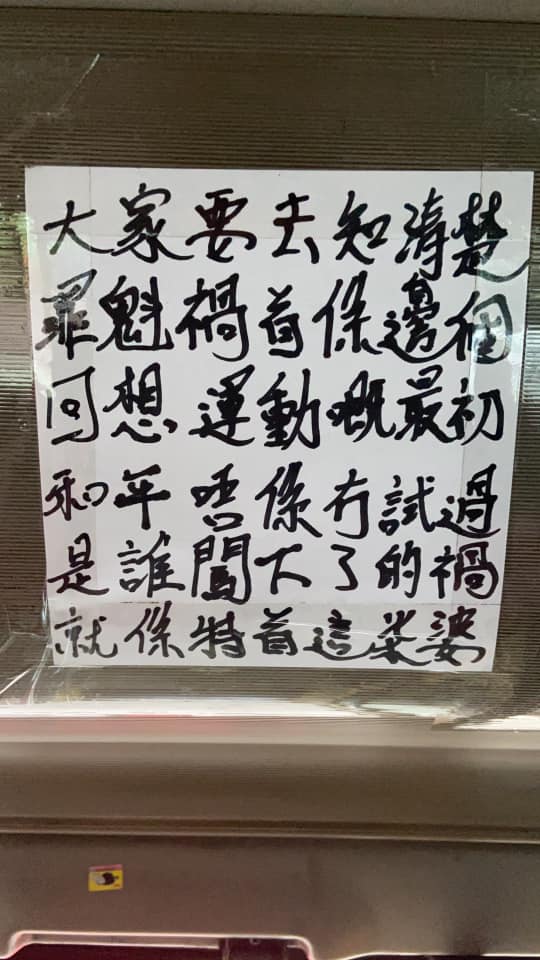 大家要去知清楚
罪魁禍首係邊個
回想運動嘅最初
和平唔係冇試過
是誰闖下了的禍
就係特首這柒婆